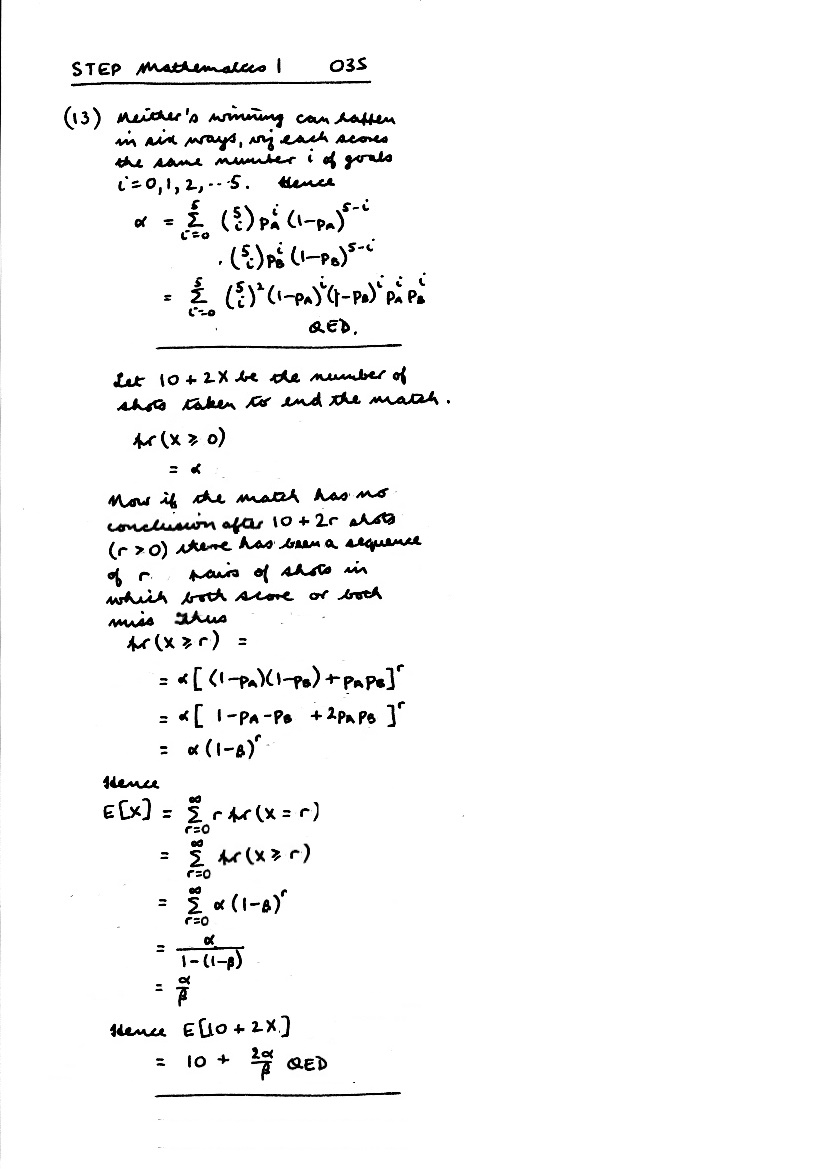 STEP Mathematics 1 03S
(13) Neither's winning can happen
in six ways, viz each scores
the same number i of goals
i = 0, 1, 2, ... 5. Hence
α = Σ_{i=0}^{5} (5 i) p_A^i (1-p_A)^{5-i}
. (5 i) p_B^i (1-p_B)^{5-i}
= Σ_{i=0}^{5} (5 i)^2 (1-p_A)^i (1-p_B)^i p_A^i p_B^i
QED.
Let 10 + 2X be the number of
shots taken to end the match.
pr(X ⩾ 0)
= α
Now if the match has no
conclusion after 10 + 2r shots
(r > 0) there has been a sequence
of r pairs of shots in
which both score or both
miss Thus
pr(X ⩾ r) =
= α[ (1-p_A)(1-p_B) + p_A p_B]^r
= α[ 1-p_A-p_B + 2p_A p_B ]^r
= α(1-β)^r
Hence
E[X] = Σ_{r=0}^{∞} r pr(X = r)
= Σ_{r=0}^{∞} pr(X ⩾ r)
= Σ_{r=0}^{∞} α(1-β)^r
= α / 1-(1-β)
= α/β
Hence E[10 + 2X]
= 10 + 2α/β QED